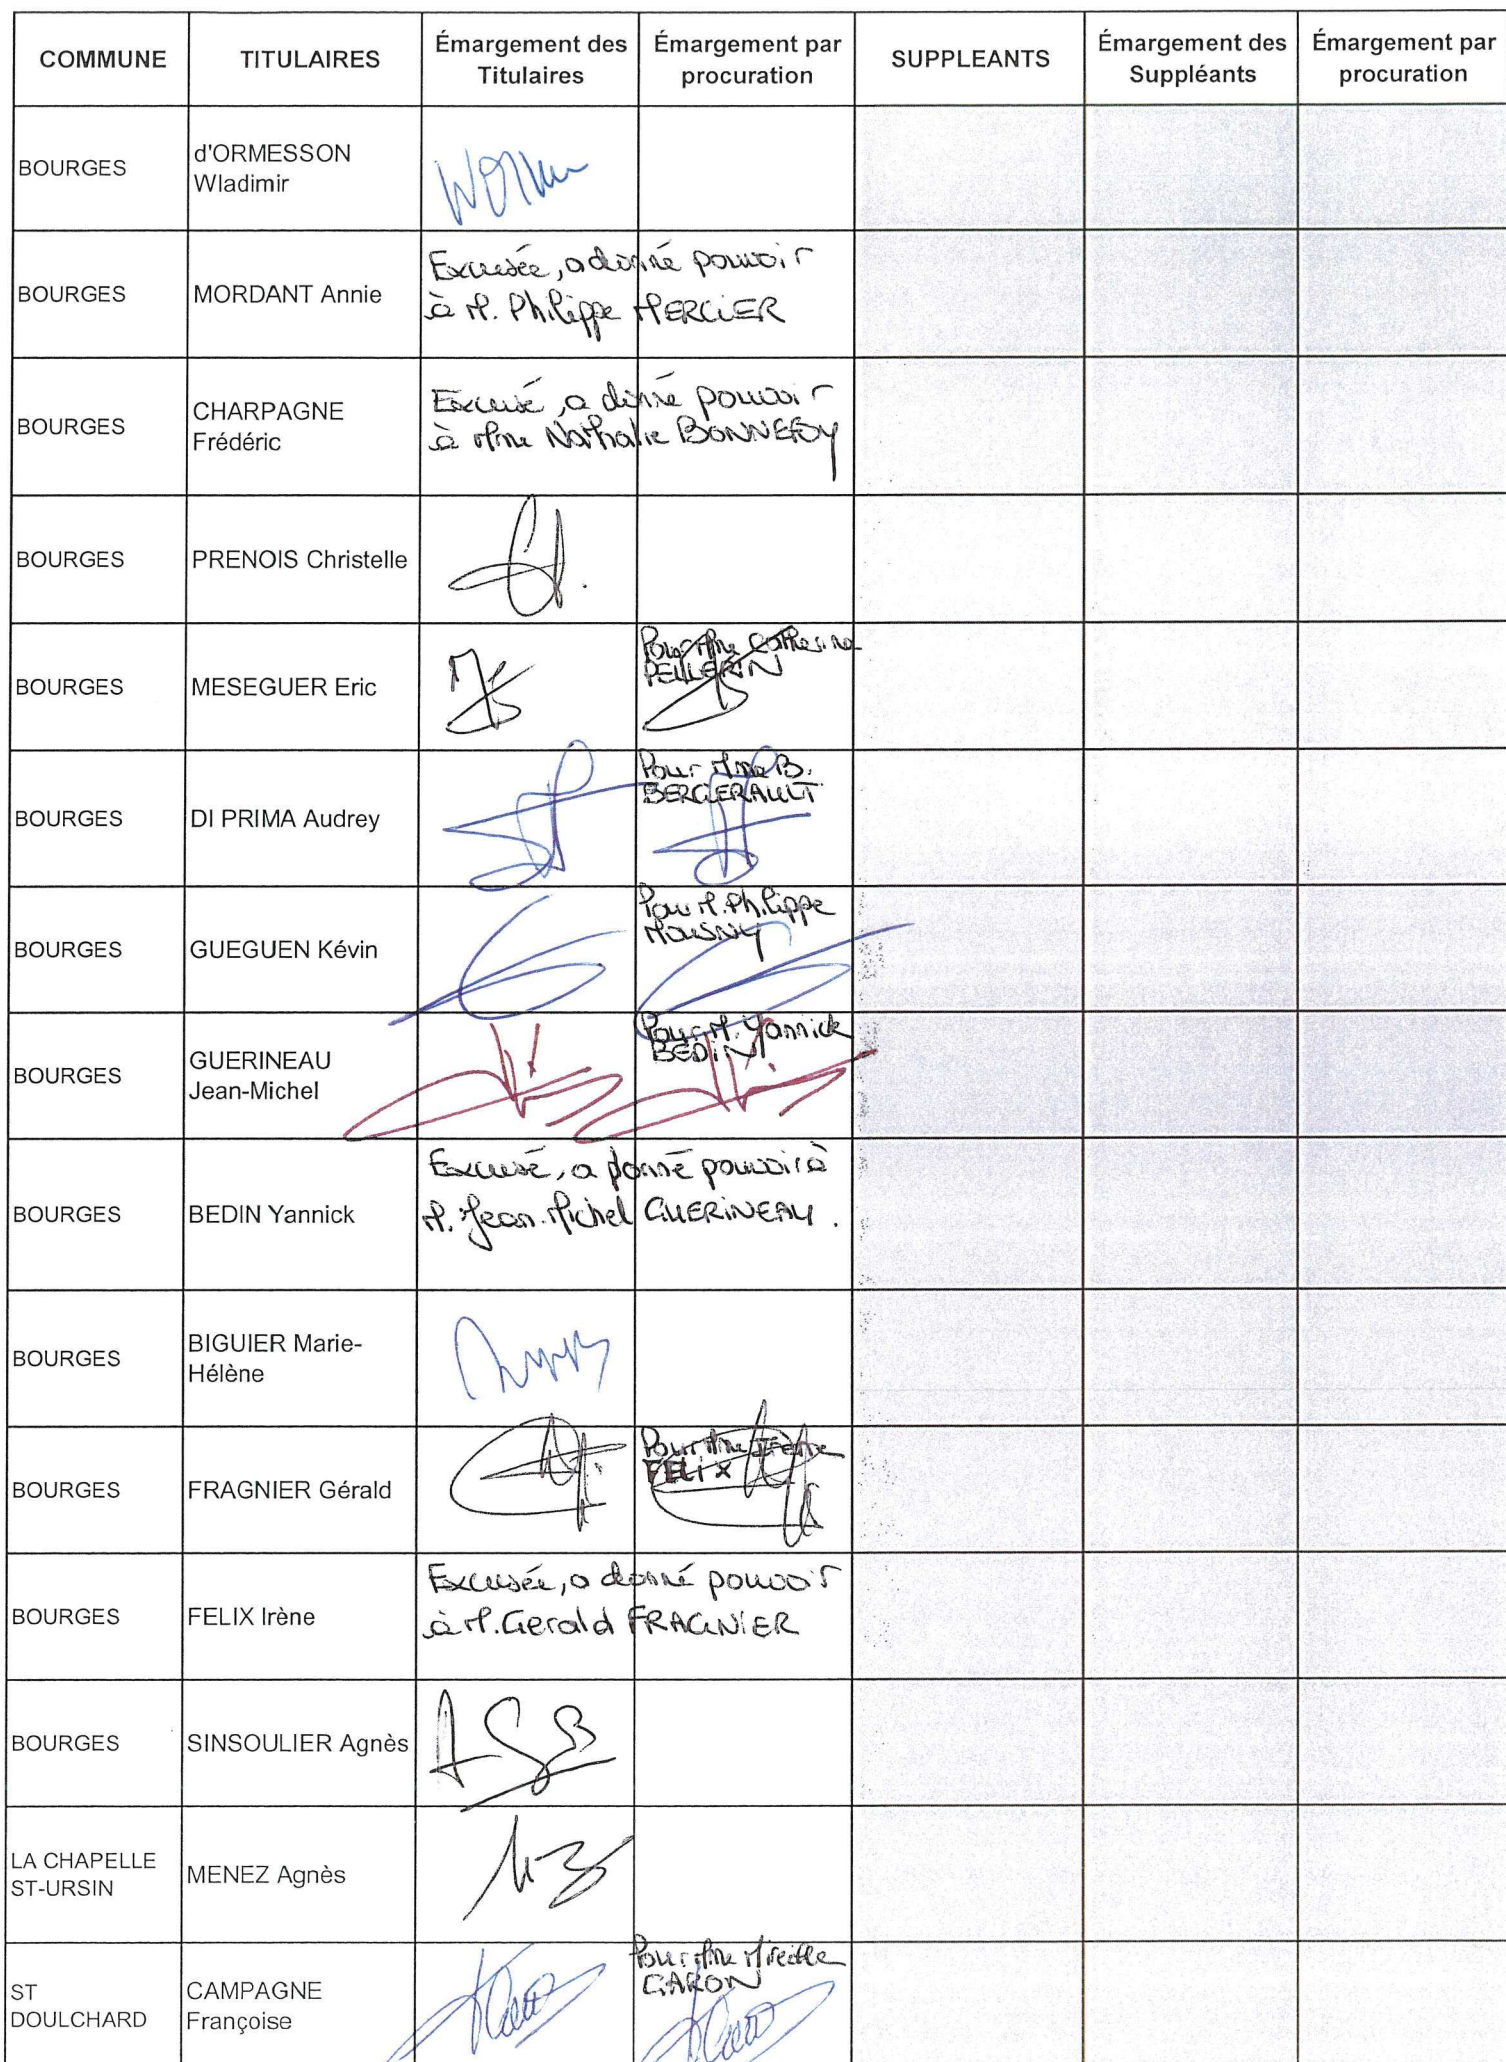 COMMUNE TITULAIRES Émargement des Titulaires Émargement par procuration SUPPLEANTS Émargement des Suppléants Émargement par procuration
BOURGES d'ORMESSON
Wladimir
BOURGES MORDANT Annie
Excusée, a donné pouvoir
à M. Philippe MERCIER
BOURGES CHARPAGNE
Frédéric
Excusé, a donné pouvoir
à Mme Nathalie BONNEFOY
BOURGES PRENOIS Christelle
BOURGES MESEGUER Eric
Pour Mme Catherine
PELLERIN
BOURGES DI PRIMA Audrey
Pour Mme B.
BERGERAULT
BOURGES GUEGUEN Kévin
Pour M. Philippe
MOUSNY
BOURGES GUERINEAU
Jean-Michel
Pour M. Yannick
BEDIN
BOURGES BEDIN Yannick
Excusé, a donné pouvoir à
M. Jean-Michel GUERINEAU.
BOURGES BIGUIER Marie-
Hélène
BOURGES FRAGNIER Gérald
Pour Mme Irène
FELIX
BOURGES FELIX Irène
Excusée, a donné pouvoir
à M. Gerald FRAGNIER
BOURGES SINSOULIER Agnès
LA CHAPELLE
ST-URSIN MENEZ Agnès
ST
DOULCHARD CAMPAGNE
Françoise
Pour Mme Mireille
CARON